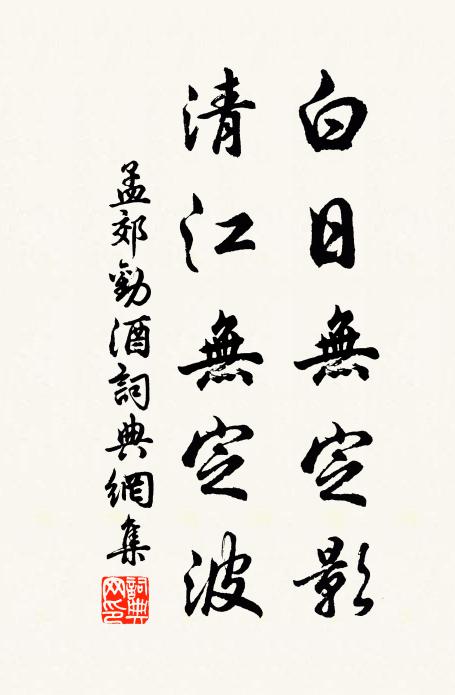 白日無定影
清江無定波
孟郊勸酒詞典網集
詞典
網印